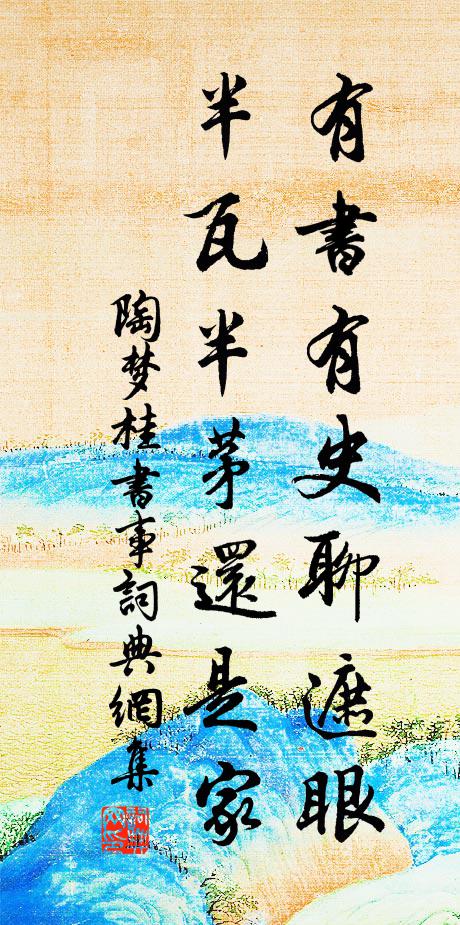 有書有史聊遮眼
半瓦半茅還是家
陶梦桂書事詞典網集